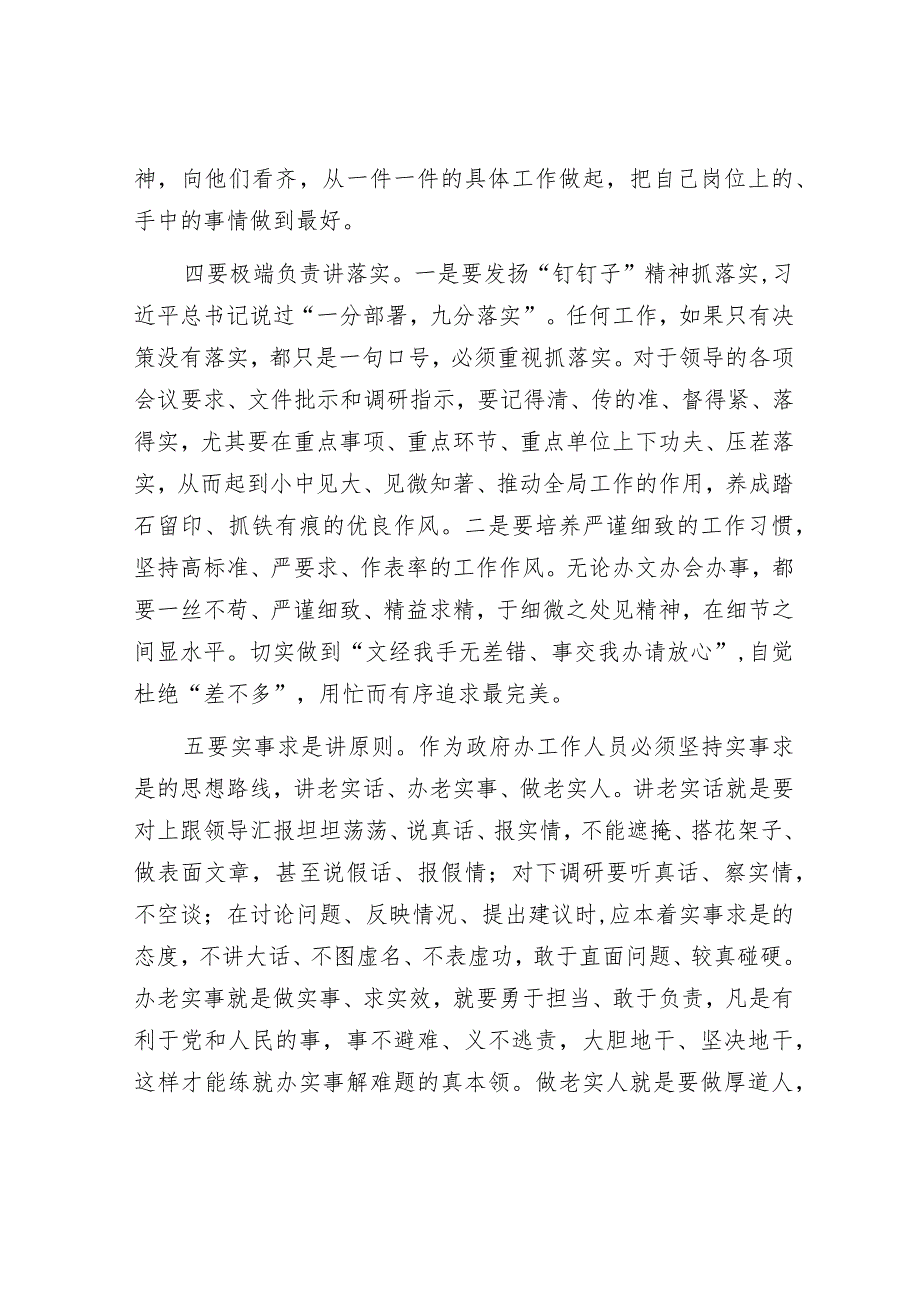 神，向他们看齐，从一件一件的具体工作做起，把自己岗位上的、
手中的事情做到最好。
四要极端负责讲落实。一是要发扬“钉钉子”精神抓落实,习
近平总书记说过“一分部署，九分落实”。任何工作，如果只有决
策没有落实，都只是一句口号，必须重视抓落实。对于领导的各项
会议要求、文件批示和调研指示，要记得清、传的准、督得紧、落
得实，尤其要在重点事项、重点环节、重点单位上下功夫、压茬落
实，从而起到小中见大、见微知著、推动全局工作的作用，养成踏
石留印、抓铁有痕的优良作风。二是要培养严谨细致的工作习惯，
坚持高标准、严要求、作表率的工作作风。无论办文办会办事，都
要一丝不苟、严谨细致、精益求精，于细微之处见精神，在细节之
间显水平。切实做到“文经我手无差错、事交我办请放心”,自觉
杜绝“差不多”，用忙而有序追求最完美。
五要实事求是讲原则。作为政府办工作人员必须坚持实事求
是的思想路线，讲老实话、办老实事、做老实人。讲老实话就是要
对上跟领导汇报坦坦荡荡、说真话、报实情，不能遮掩、搭花架子、
做表面文章，甚至说假话、报假情；对下调研要听真话、察实情，
不空谈；在讨论问题、反映情况、提出建议时,应本着实事求是的
态度，不讲大话、不图虚名、不表虚功，敢于直面问题、较真碰硬。
办老实事就是做实事、求实效，就要勇于担当、敢于负责，凡是有
利于党和人民的事，事不避难、义不逃责，大胆地干、坚决地干，
这样才能练就办实事解难题的真本领。做老实人就是要做厚道人，